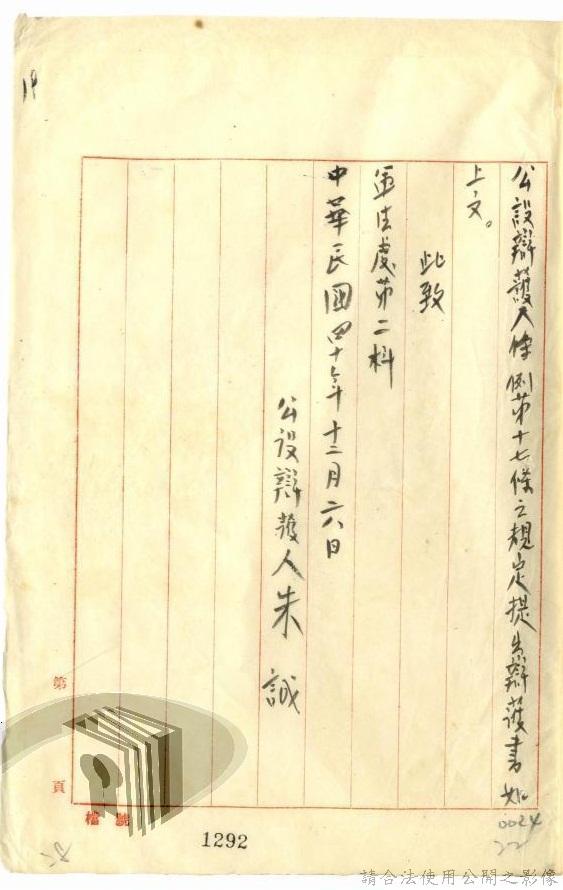 公設辯護人條例第十七條之規定提出辯護書如
上文。
此致
軍法處第二科
中華民國四十年十二月六日
公設辯護人朱誠
第 頁
檔 號
1292
0024
22
19
請合法使用公開之影像